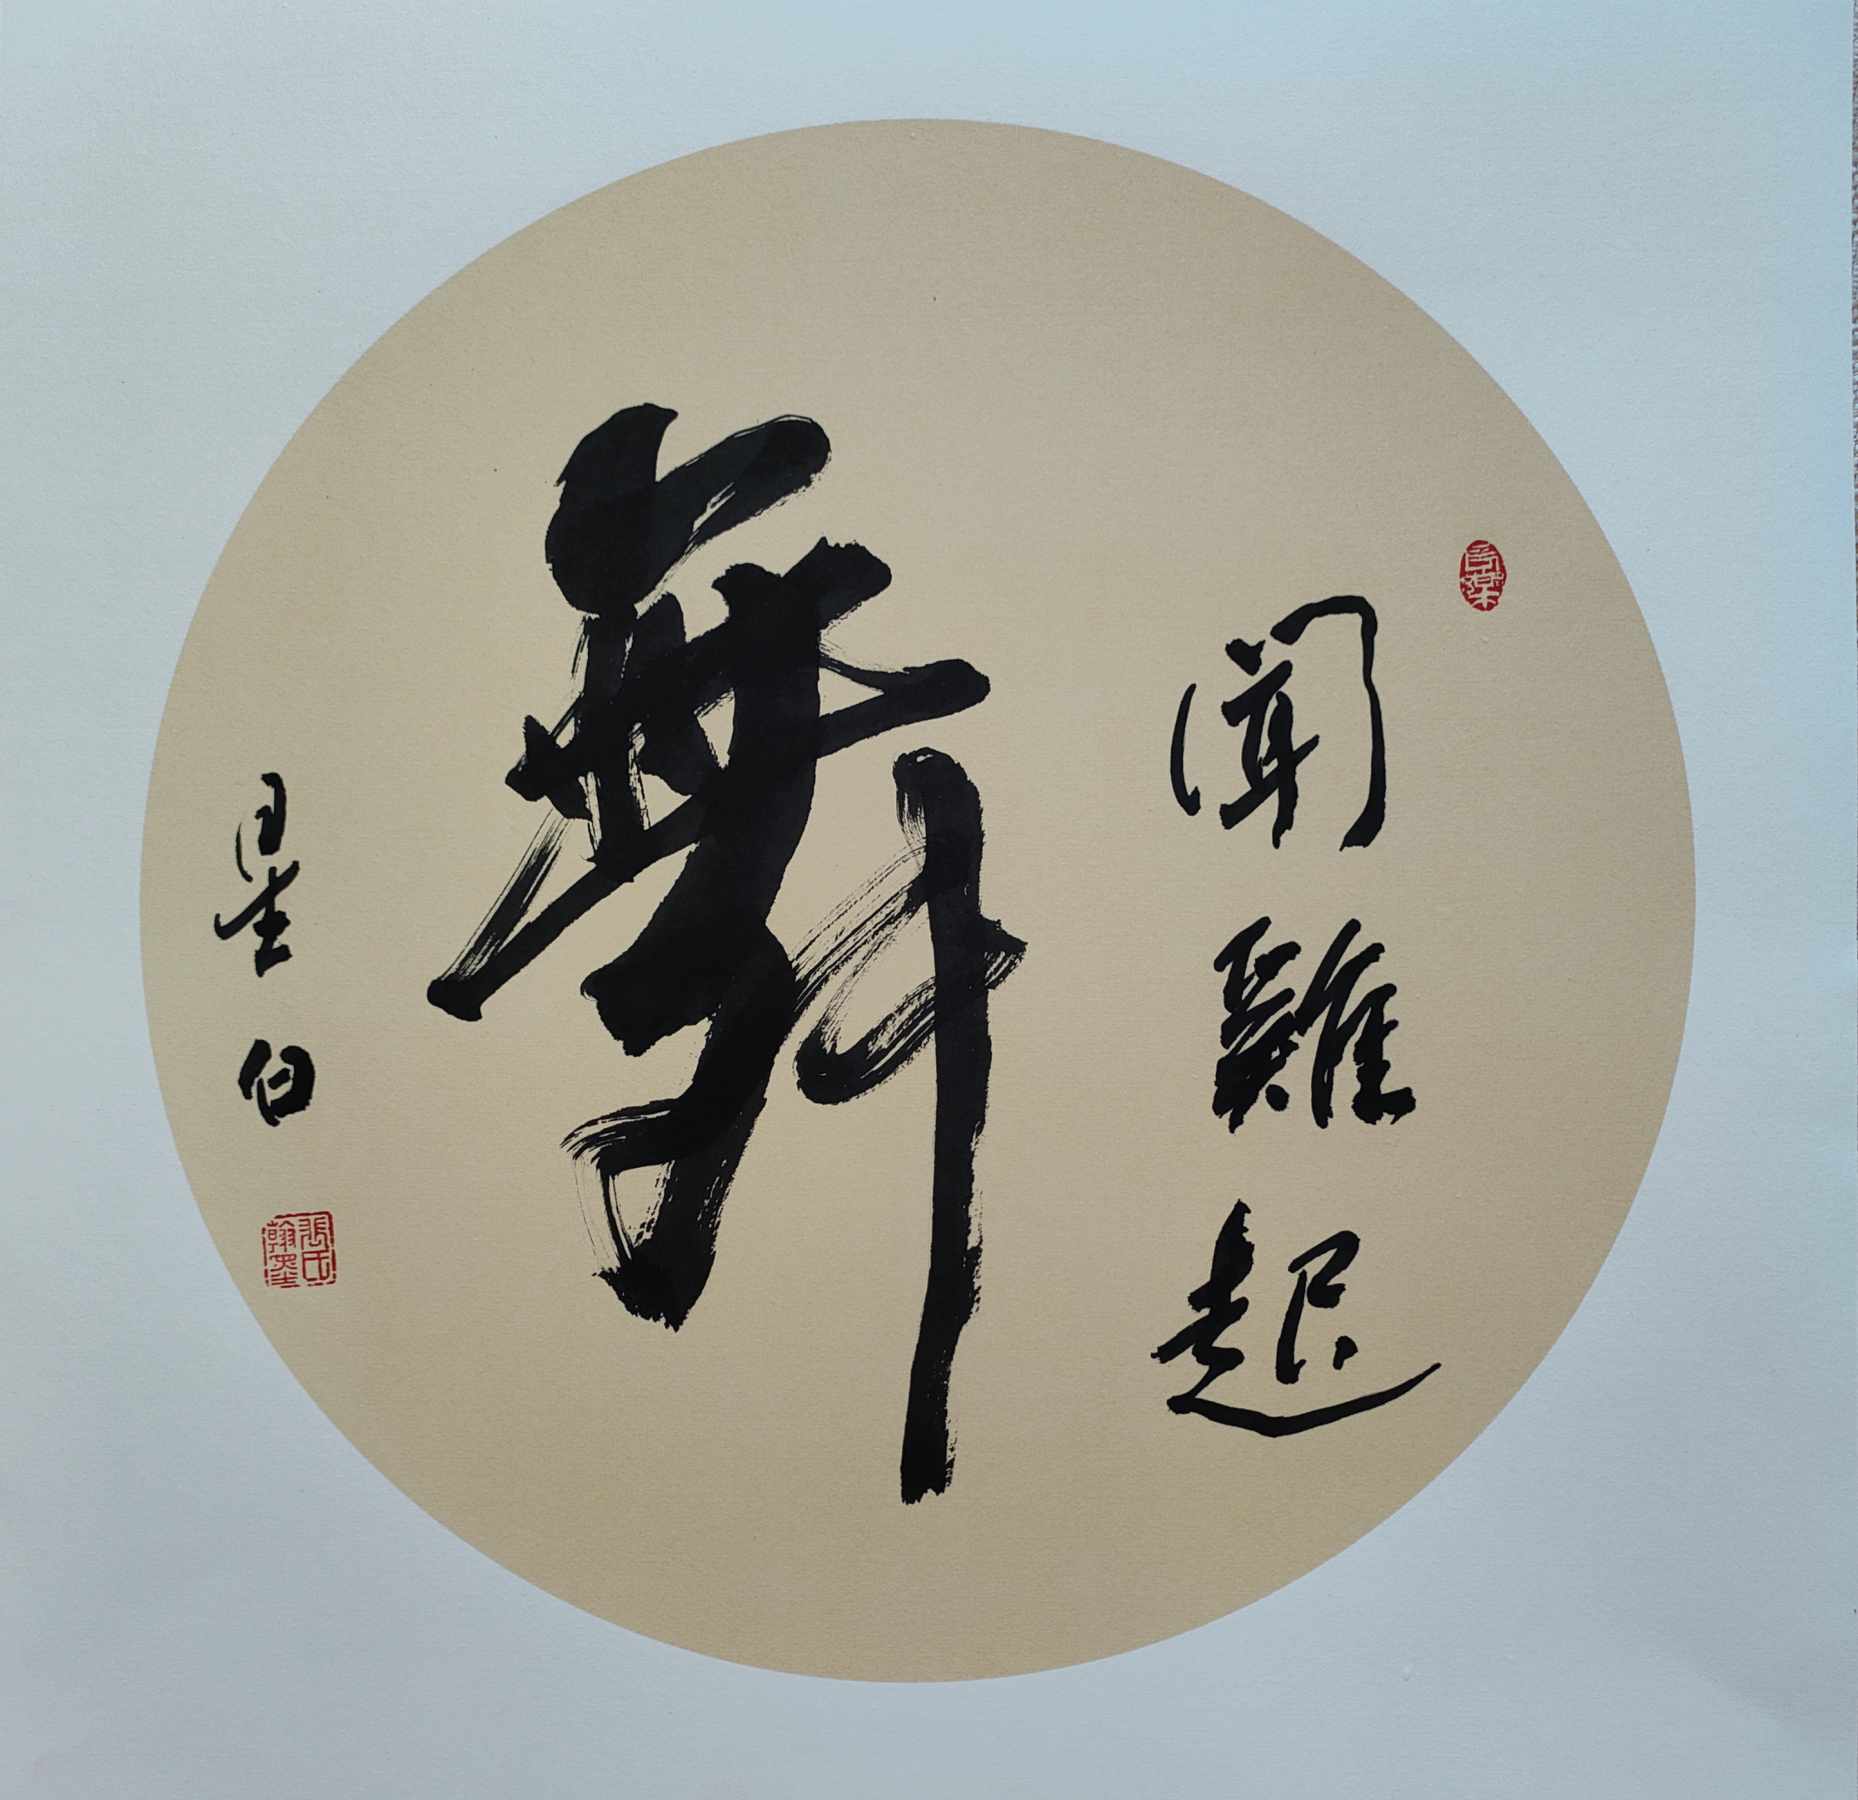 聞雞起
舞
星白
張氏翰墨